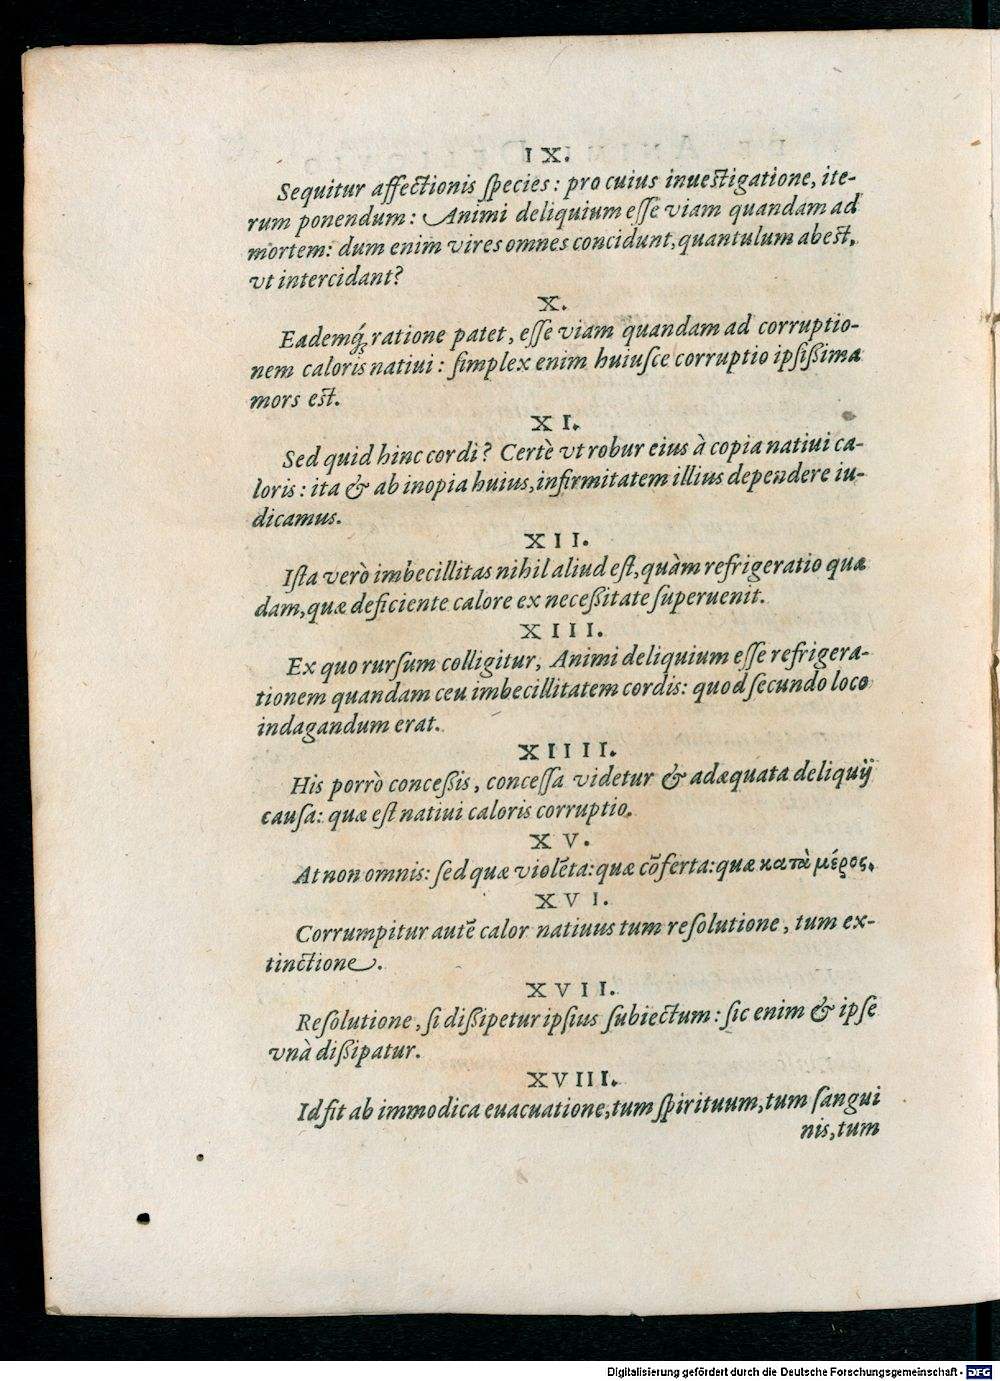 IX.
Sequitur affectionis species: pro cuius inuestigatione, ite-
rum ponendum: Animi deliquium esse viam quandam ad
mortem: dum enim vires omnes concidunt, quantulum abest,
vt intercidant?
X.
Eademq́; ratione patet, esse viam quandam ad corruptio-
nem caloris natiui: simplex enim huiusce corruptio ipsißima
mors est.
XI.
Sed quid hinc cordi? Certè vt robur eius à copia natiui ca-
loris: ita & ab inopia huius, infirmitatem illius dependere iu-
dicamus.
XII.
Ista verò imbecillitas nihil aliud est, quàm refrigeratio quæ
dam, quæ deficiente calore ex neceßitate superuenit.
XIII.
Ex quo rursum colligitur, Animi deliquium esse refrigera-
tionem quandam ceu imbecillitatem cordis: quod secundo loco
indagandum erat.
XIIII.
His porrò conceßis, concessa videtur & adæquata deliquij
causa: quæ est natiui caloris corruptio.
XV.
At non omnis: sed quæ violēta: quæ cōferta: quæ κατὰ μέρος.
XVI.
Corrumpitur autē calor natiuus tum resolutione, tum ex-
tinctione.
XVII.
Resolutione, si dißipetur ipsius subiectum: sic enim & ipse
vnà dißipatur.
XVIII.
Id fit ab immodica euacuatione, tum spirituum, tum sangui
nis, tum
Digitalisierung gefördert durch die Deutsche Forschungsgemeinschaft - DFG